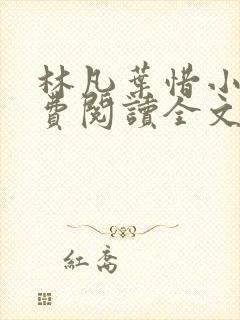 林凡葉惜小
費閱讀全文
紅喬